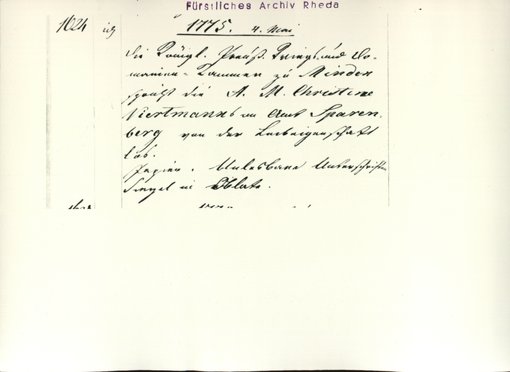 Fürstliches Archiv Rheda
1624 1775. 4. Mai
die Königl. Preuß. Kriegs und Do-
mainen-Kammer zu Minden
spricht die A. M. Christine
Niertmanns im Amt Sparen-
berg von der Leibeigenschaft
los.
Papier. Unlesbare Unterschriften
Siegel in Oblate.